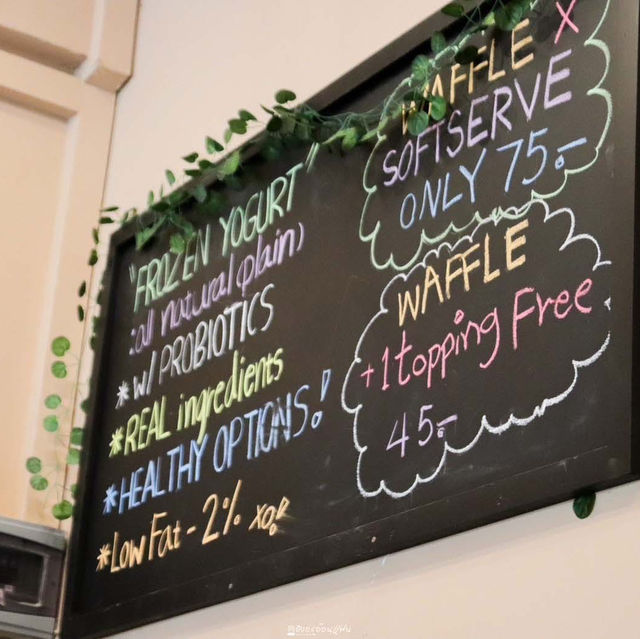 "FROZEN YOGURT"
:all natural (plain)
*w/ PROBIOTICS
*REAL ingredients
*HEALTHY OPTIONS!
*LOW Fat - 2% xo!
WAFFLE X
SOFTSERVE
ONLY 75.-
WAFFLE
+1 topping Free
45.-